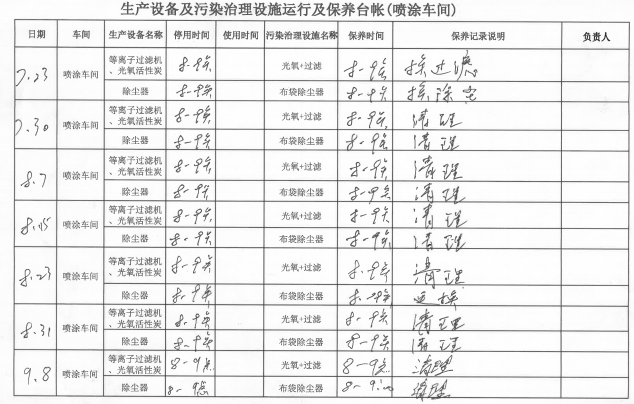 生产设备及污染治理设施运行及保养台帐(喷涂车间)
日期 车间 生产设备名称 停用时间 使用时间 污染治理设施名称 保养时间 保养记录说明 负责人
7.23 喷涂车间 等离子过滤机、光氧活性炭 8-9点 光氧+过滤 8-9点 换过滤
除尘器 8-9点 布袋除尘器 8-9点 换除尘
7.30 喷涂车间 等离子过滤机、光氧活性炭 8-9点 光氧+过滤 8-9点 清理
除尘器 8-9点 布袋除尘器 8-9点 清理
8.7 喷涂车间 等离子过滤机、光氧活性炭 8-9点 光氧+过滤 8-9点 清理
除尘器 8-9点 布袋除尘器 8-9点 清理
8.15 喷涂车间 等离子过滤机、光氧活性炭 8-9点 光氧+过滤 8-9点 清理
除尘器 8-9点 布袋除尘器 8-9点 清理
8.23 喷涂车间 等离子过滤机、光氧活性炭 8-9点 光氧+过滤 8-9点 清理
除尘器 8-9点 布袋除尘器 8-9点 更换
8.31 喷涂车间 等离子过滤机、光氧活性炭 8-9点 光氧+过滤 8-9点 清理
除尘器 8-9点 布袋除尘器 8-9点 清理
9.8 喷涂车间 等离子过滤机、光氧活性炭 8-9点 光氧+过滤 8-9点 清理
除尘器 8-9点 布袋除尘器 8-9:00 清理